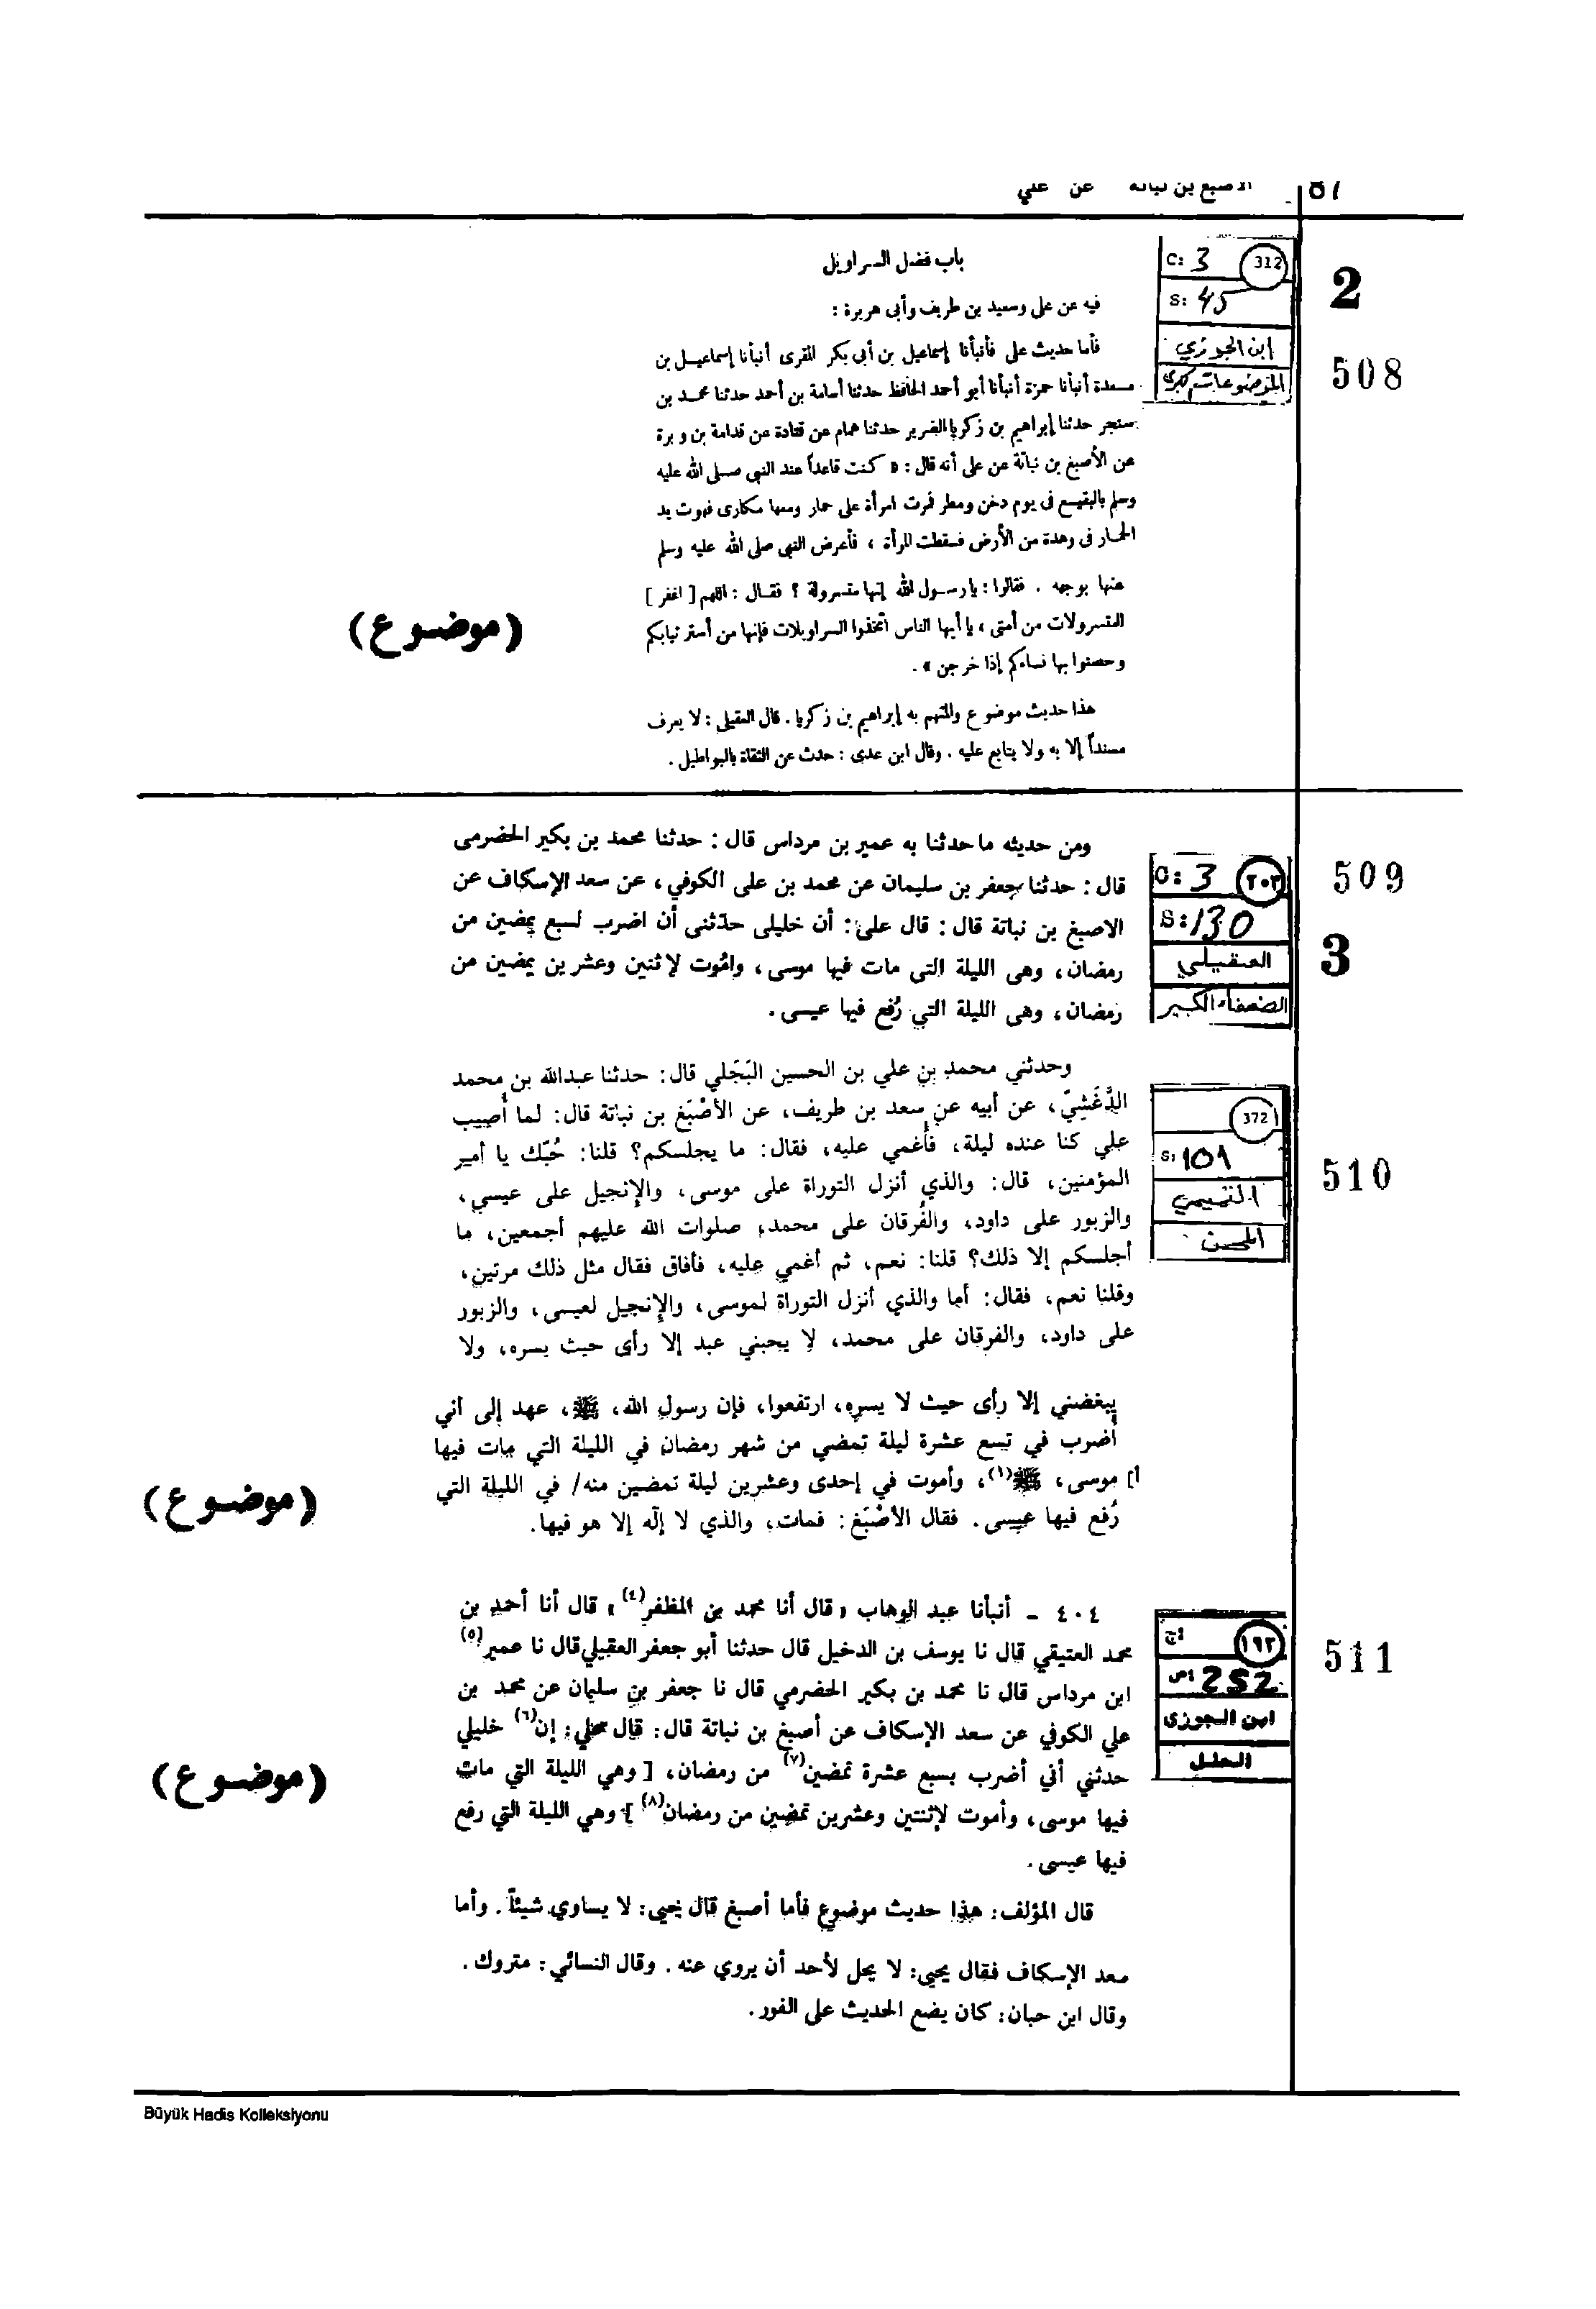 الاصبغ بن نباتة عن علي
87
باب فضل السراويل
فيه عن على وسعيد بن طريف وأبى هريرة :
فأما حديث على فأنبأنا إسماعيل بن أبى بكر المقرى أنبأنا إسماعيل بن
مسعدة أنبأنا حمزة أنبأنا أبو أحمد الحافظ حدثنا أسامة بن أحمد حدثنا محمد بن
سنجر حدثنا إبراهيم بن زكريا الضرير حدثنا همام عن قتادة عن قدامة بن وبرة
عن الأصبغ بن نباتة عن على أنه قال : « كنت قاعداً عند النبى صلى الله عليه
وسلم بالبقيع فى يوم دخن ومطر فمرت امرأة على حمار ومعها مكارى فهوت يد
الحمار فى وهدة من الأرض فسقطت المرأة ، فأعرض النبى صلى الله عليه وسلم
عنها بوجهه . فقالوا : يا رسول الله إنها متسرولة ؟ فقال : اللهم [ اغفر ]
المتسرولات من أمتى ، يا أيها الناس اتخذوا السراويلات فإنها من أستر ثيابكم
وحصنوا بها نساءكم إذا خرجن » .
هذا حديث موضوع والمتهم به إبراهيم بن زكريا . قال العقيلى : لا يعرف
مسنداً إلا به ولا يتابع عليه . وقال ابن عدى : حدث عن الثقاة بالبواطيل .
(موضوع)
C: 3 312
S: 45
إبن الجوزي
الموضوعات كبرى
2
508
ومن حديثه ما حدثنا به عمير بن مرداس قال : حدثنا محمد بن بكير الحضرمى
قال : حدثنا جعفر بن سليمان عن محمد بن على الكوفي ، عن سعد الإسكاف عن
الاصبغ بن نباتة قال : قال على : أن خليلى حدّثنى أن اضرب لسبع يمضين من
رمضان ، وهى الليلة التى مات فيها موسى ، واموت لإثنين وعشرين يمضين من
رمضان ، وهى الليلة التي رُفع فيها عيسى .
C: 3 ٢٠٣
S: 130
العقيلي
الضعفاء الكبير
509
3
وحدثني محمد بن علي بن الحسين البَجَلي قال: حدثنا عبدالله بن محمد
الدَّغَشِيّ، عن أبيه عن سعد بن طريف، عن الأصْبَغ بن نباتة قال: لما أُصيب
علي كنا عنده ليلة، فأُغمي عليه، فقال: ما يجلسكم؟ قلنا: حُبّك يا أمير
المؤمنين، قال: والذي أنزل التوراة على موسى، والإنجيل على عيسي،
والزبور على داود، والفُرقان على محمد، صلوات الله عليهم أجمعين، ما
أجلسكم إلا ذلك؟ قلنا: نعم، ثم أغمي عليه، فأفاق فقال مثل ذلك مرتين،
وقلنا نعم، فقال: أما والذي أنزل التوراة لموسى، والإنجيل لعيسى، والزبور
على داود، والفرقان على محمد، لا يحبني عبد إلا رأى حيث يسره، ولا
يبغضني إلا رأى حيث لا يسره، ارتفعوا، فإن رسول الله، ﷺ، عهد إلى أني
أضرب في تسع عشرة ليلة تمضي من شهر رمضان في الليلة التي مات فيها
أ] موسى، ﷺ(١)، وأموت في إحدى وعشرين ليلة تمضين منه/ في الليلة التي
رُفع فيها عيسى. فقال الأصْبَغ: فمات، والذي لا إلّه إلا هو فيها.
(موضوع)
372
S: 101
التميمي
المحن
510
٤٠٤ - أنبأنا عبد الوهاب « قال أنا محمد بن المظفر(٤) » قال أنا أحمد بن
محمد العتيقي قال نا يوسف بن الدخيل قال حدثنا أبو جعفر العقيلي قال نا عمير(٥)
ابن مرداس قال نا محمد بن بكير الحضرمي قال نا جعفر بن سليمان عن محمد بن
علي الكوفي عن سعد الإسكاف عن أصبغ بن نباتة قال: قال علي: إن(٦) خليلي
حدثني أني أضرب بسبع عشرة تمضين(٧) من رمضان، [ وهي الليلة التي مات
فيها موسى، وأموت لإثنتين وعشرين تمضين من رمضان(٨) ] وهي الليلة التي رفع
فيها عيسى.
قال المؤلف: هذا حديث موضوع فأما أصبغ قال يحيى: لا يساوي شيئاً. وأما
سعد الإسكاف فقال يحيى: لا يحل لأحد أن يروي عنه. وقال النسائي: متروك.
وقال ابن حبان: كان يضع الحديث على الفور.
(موضوع)
ج: ١٩٢
ص: 252
ابن الجوزى
العلل
511
Büyük Hadis Kolleksiyonu